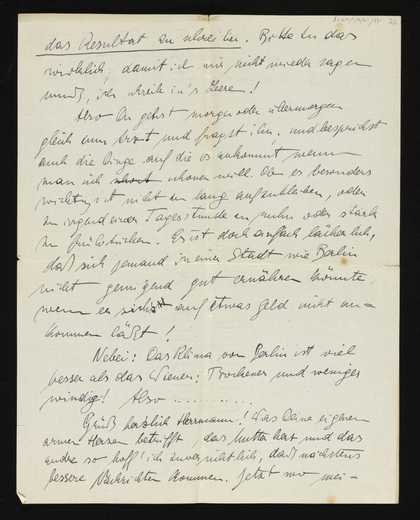 das Resultat zu schreiben. Bitte tu das
wirklich, damit ich mir nicht wieder sagen
muß, ich schreib in's Leere!
Also Du gehst morgen oder übermorgen
gleich zum Arzt und fragst ihn, und besprichst
auch die Dinge auf die es ankommt wenn
man sich schonen will. Ob es besonders
wichtig ist nicht zu lang aufzubleiben, oder
zu irgend einer Tagesstunde zu ruhn oder stark
zu frühstücken. Es ist doch einfach lächerlich,
daß sich jemand in einer Stadt wie Berlin
nicht genügend gut ernähren könnte,
wenn er sichs auf etwas Geld nicht an-
kommen läßt!
Nebei: Das Klima von Berlin ist viel
besser als das Wiener: Trockener und weniger
windig! Also ..........
Grüß herzlich Herrmann! Was Deine eigenen
armen Herzen betrifft, das Mutterherz und das
andre so hoff' ich zuversichtlich, daß nächstens
bessere Nachrichten kommen. Jetzt wo mei-